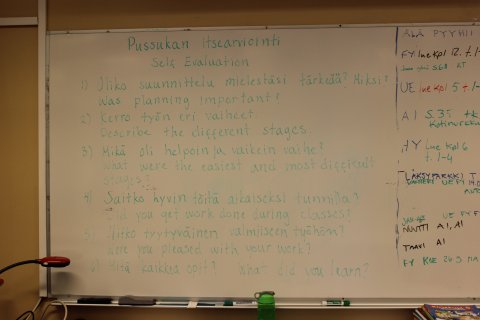 Pussukan itsearviointi
Self Evaluation
1) Oliko suunnittelu mielestäsi tärkeää? Miksi?
Was planning important?
2) Kerro työn eri vaiheet.
Describe the different stages.
3) Mikä oli helpoin ja vaikein vaihe?
What were the easiest and most difficult
stages?
4) Saitko hyvin töitä aikaiseksi tunnilla?
Did you get work done during classes?
5) Oletko tyytyväinen valmiiseen työhön?
Were you pleased with your work?
6) Mitä kaikkea opit? What did you learn?
ÄLÄ PYYHI
FY lue kpl 12. t. 1-
UE lue kpl 5 t. 1-
AI S. 35
HY lue kpl 6
t. 1-4
LÄKSYPARKKI
UE FY
NUTTI AI, AI
TAAVI AI
FY KOE 26.3. MA